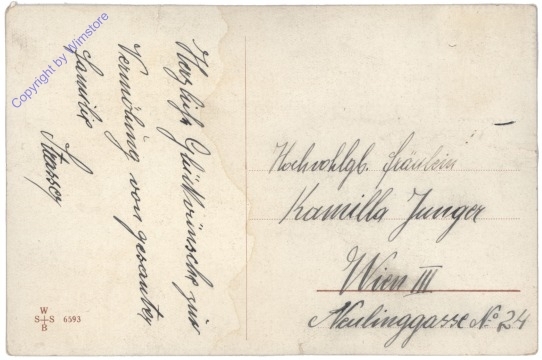 Copyright by Wimstore
Herzliche Glückwünsche zur
Vermälung von gesamter
Familie Strasser
Hochwohlgb. Fräulein
Kamilla Junger
Wien III
Neulinggasse No 24
W
S S
B
6593